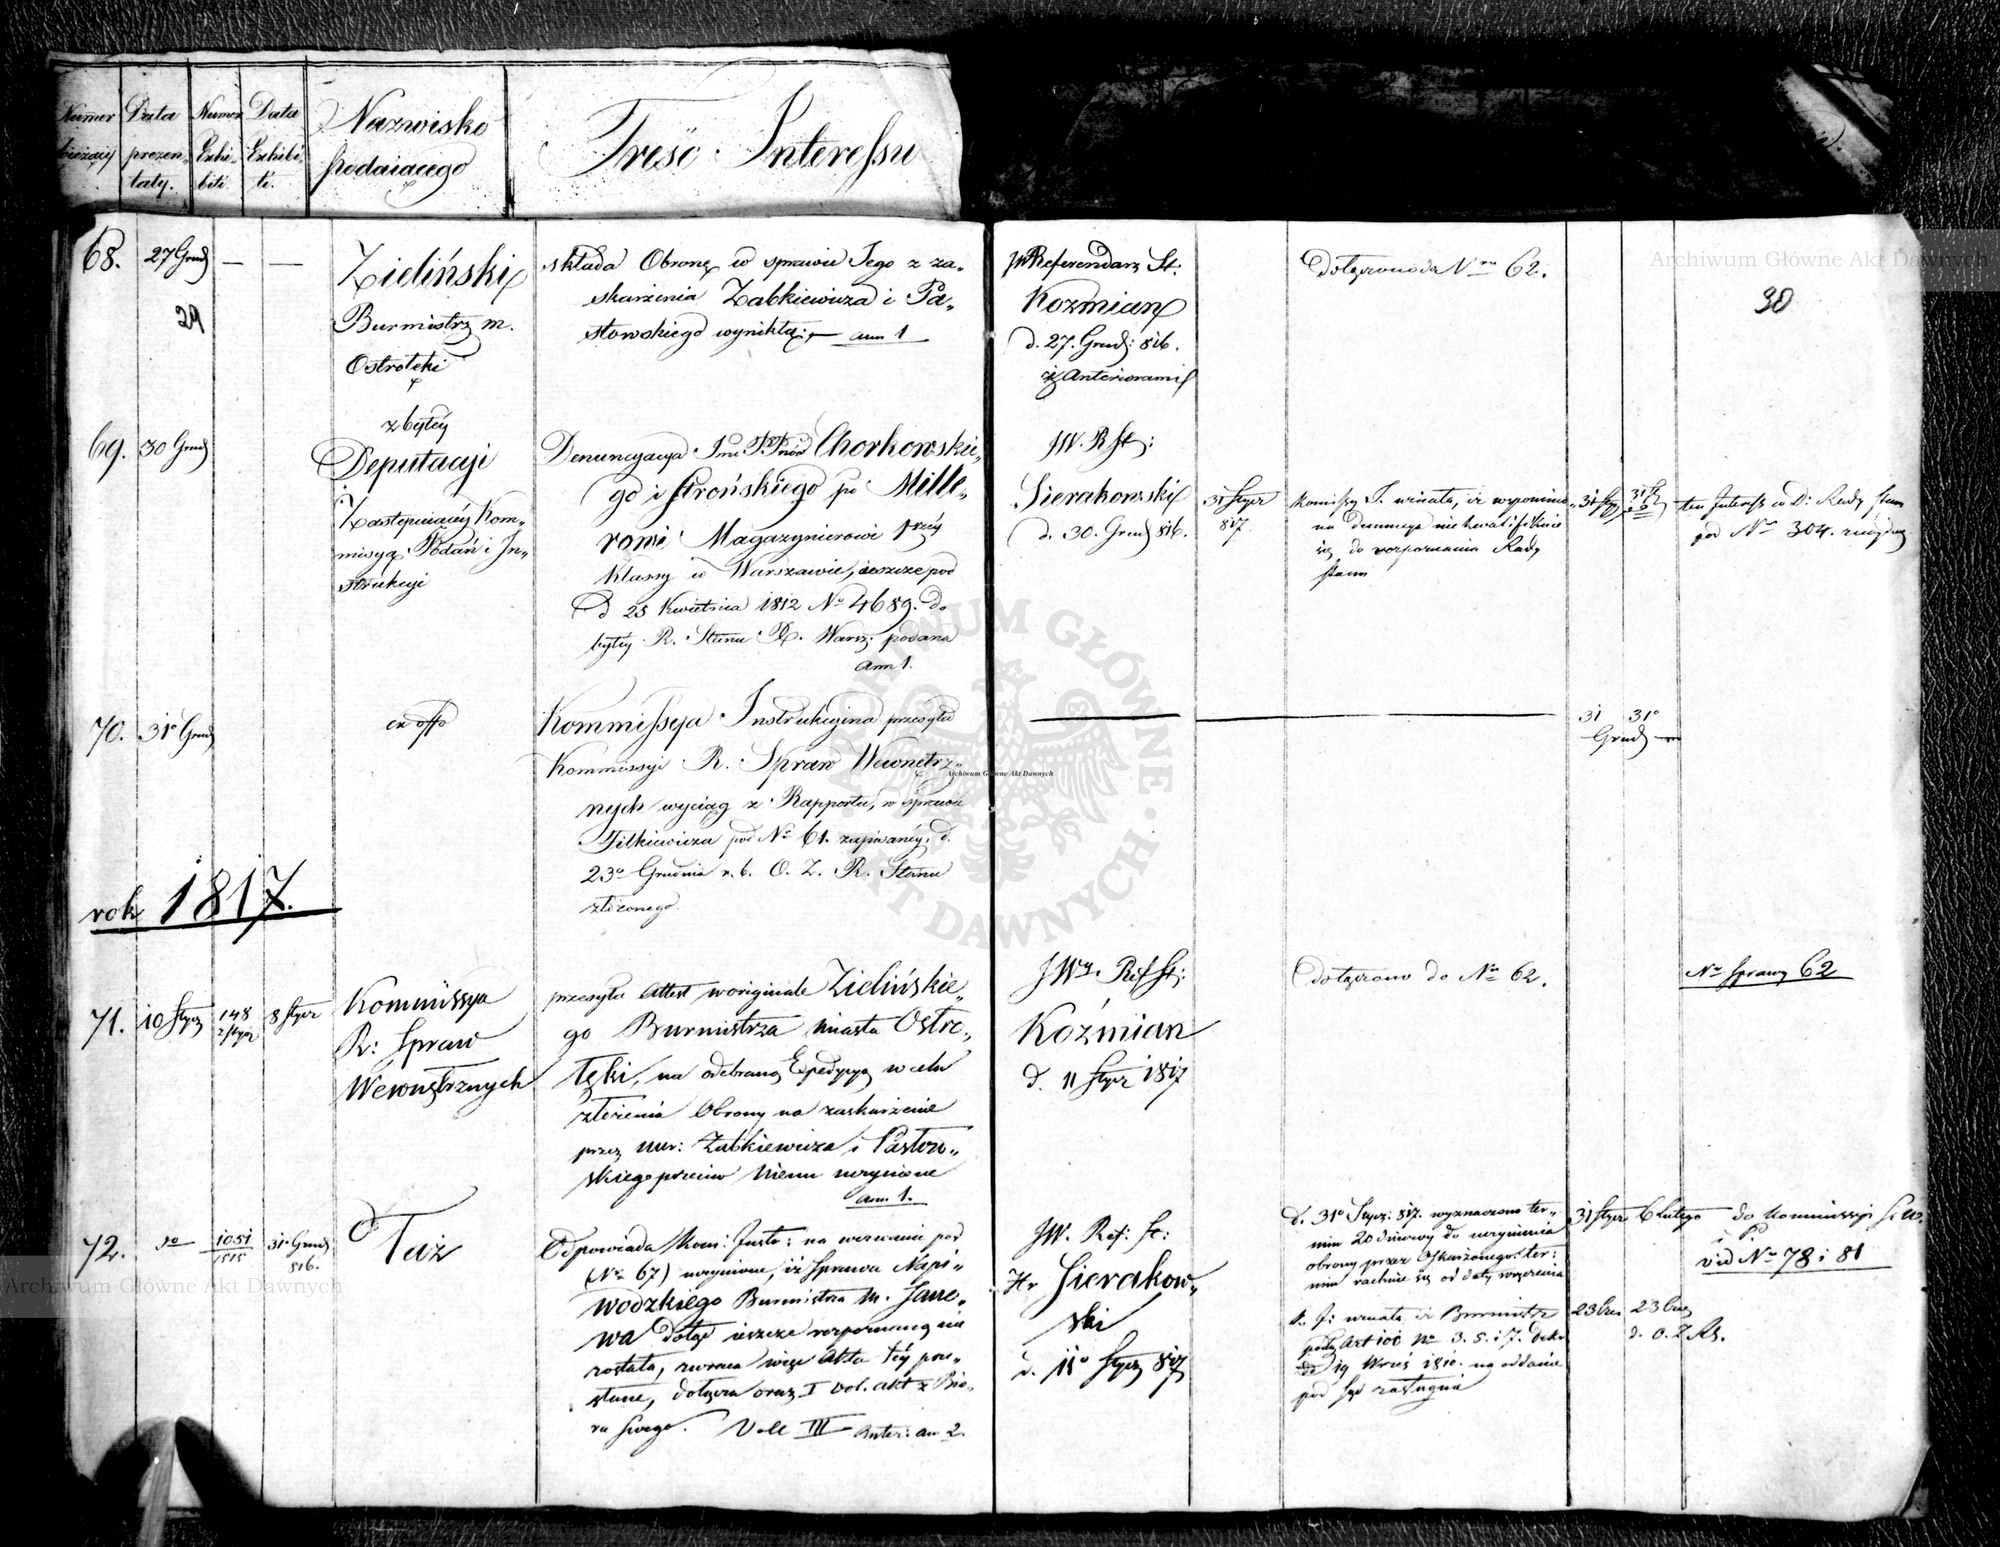 Numer bieżący
Data prezen-
taty.
Numer Exhi-
biti
Data Exhibi-
ti.
Nazwisko
podaiącego
Treść Interessu
68.
27 Grud
29
—
—
Zieliński
Burmistrz m.
Ostrołęki
składa Obronę w sprawie Jego z za-
skarżenia Żabkiewicza i Pa-
stowskiego wynikłą; — ann 1
JW Referendarz St:
Koźmian
d. 27. Grud: 816.
z Anterioramis
Dołączono do Nru 62.
30
69.
30 Grud
z byłéy
Deputacyi
Zastępuiącéy Kom-
missyą Podań i In-
strukcyi
Denuncyacya Chorkowskie-
go i Girońskiego po Mille-
rowi Magazynierowi
klassy w Warszawie, ieszcze pod
d 25 Kwietnia 1812 No 4689. do
byłey R. Stanu X. Warsz. podana
ann 1.
JW. R St:
Sierakowski
d. 30. Grud 816.
31 Stycz
817.
31 Sty
ten Interess w D: Rady Stanu
pod No 304.
Kommissy J. uznała, iż wspomnio-
na Denuncya nie kwalifikuie
się do rozpoznania Rady
Stanu
70.
31o Grud
ex offo
Kommissya Instrukcyina przesyła
Kommissyi R. Spraw Wewnętrz-
nych wyciąg z Rapportu, w sprawie
Filkiewicza pod No 61. zapisanéy, d.
23o Grudnia r. b. O. Z. R. Stanu
złożonego.
31 31o
Grud —
rok 1817.
71.
10 Stycz
148
2 stycz
8 Stycz
Kommissya
R: Spraw
Wewnętrznych
przesyła Attest w originale Zielińskie-
go Burmistrza miasta Ostro-
łęki, na odebraną Expedycyą w celu
złożenia Obrony na zaskarżenie
przez Żabkiewicza i Pastow-
skiego przeciw Niemu uczynione
ann 1.
JWy. Ref St:
Koźmian
d. 11 Stycz 1817
dołączono do Nru 62.
No sprawy 62
72.
do
1051
1515
31o Grud
816.
Taż
Odpowiada Kom: Instr: na wezwanie pod
(No 67) uczynione, iż Sprawa Napi-
wodzkiego Burmistrza m. Jano-
wa dotąd ieszcze rozpoznaną nie
została, zwraca więc Akta téy prze-
słane, dołącza oraz I Vol. akt z Biu-
ra Swego. Voll III Anter: an 2.
JW. Ref: St:
Hr Sierakow-
ski
d. 11o Stycz 817
d. 31o Stycz: 817. wyznaczono ter-
min 20 dniowy do uczynienia
obrony przez Oskarżonego: ter:
min rachuie się od daty wręczenia
K. J: uznała iż Burmistrz
podług Art 100 No 3. 5. i 7. Dekr
de 19 Wrześ 1810. na oddanie
pod Sąd zasługuie
31 Stycz
6 Lutego
do Kommissyi S. W.
vid No 78 i 81
23 Cze
23 Cze
d. O. Z. R S.
Archiwum Główne Akt Dawnych
Archiwum Główne Akt Dawnych
Archiwum Główne Akt Dawnych
ARCHIWUM GŁÓWNE AKT DAWNYCH